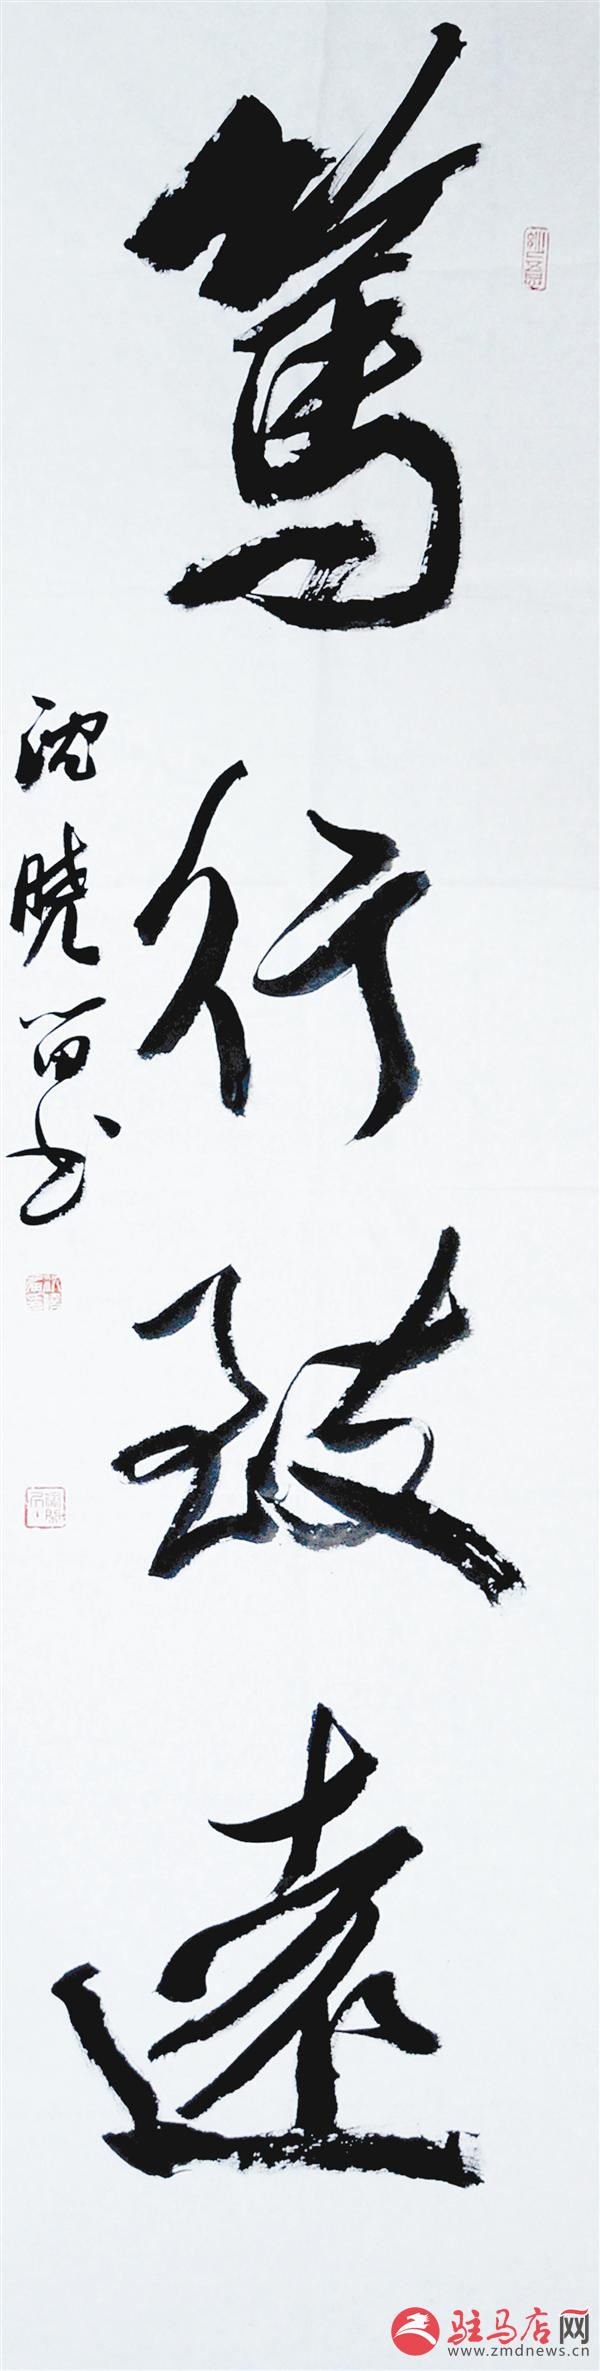 篤行致遠
沈曉笛书
驻马店网
www.zmdnews.cn